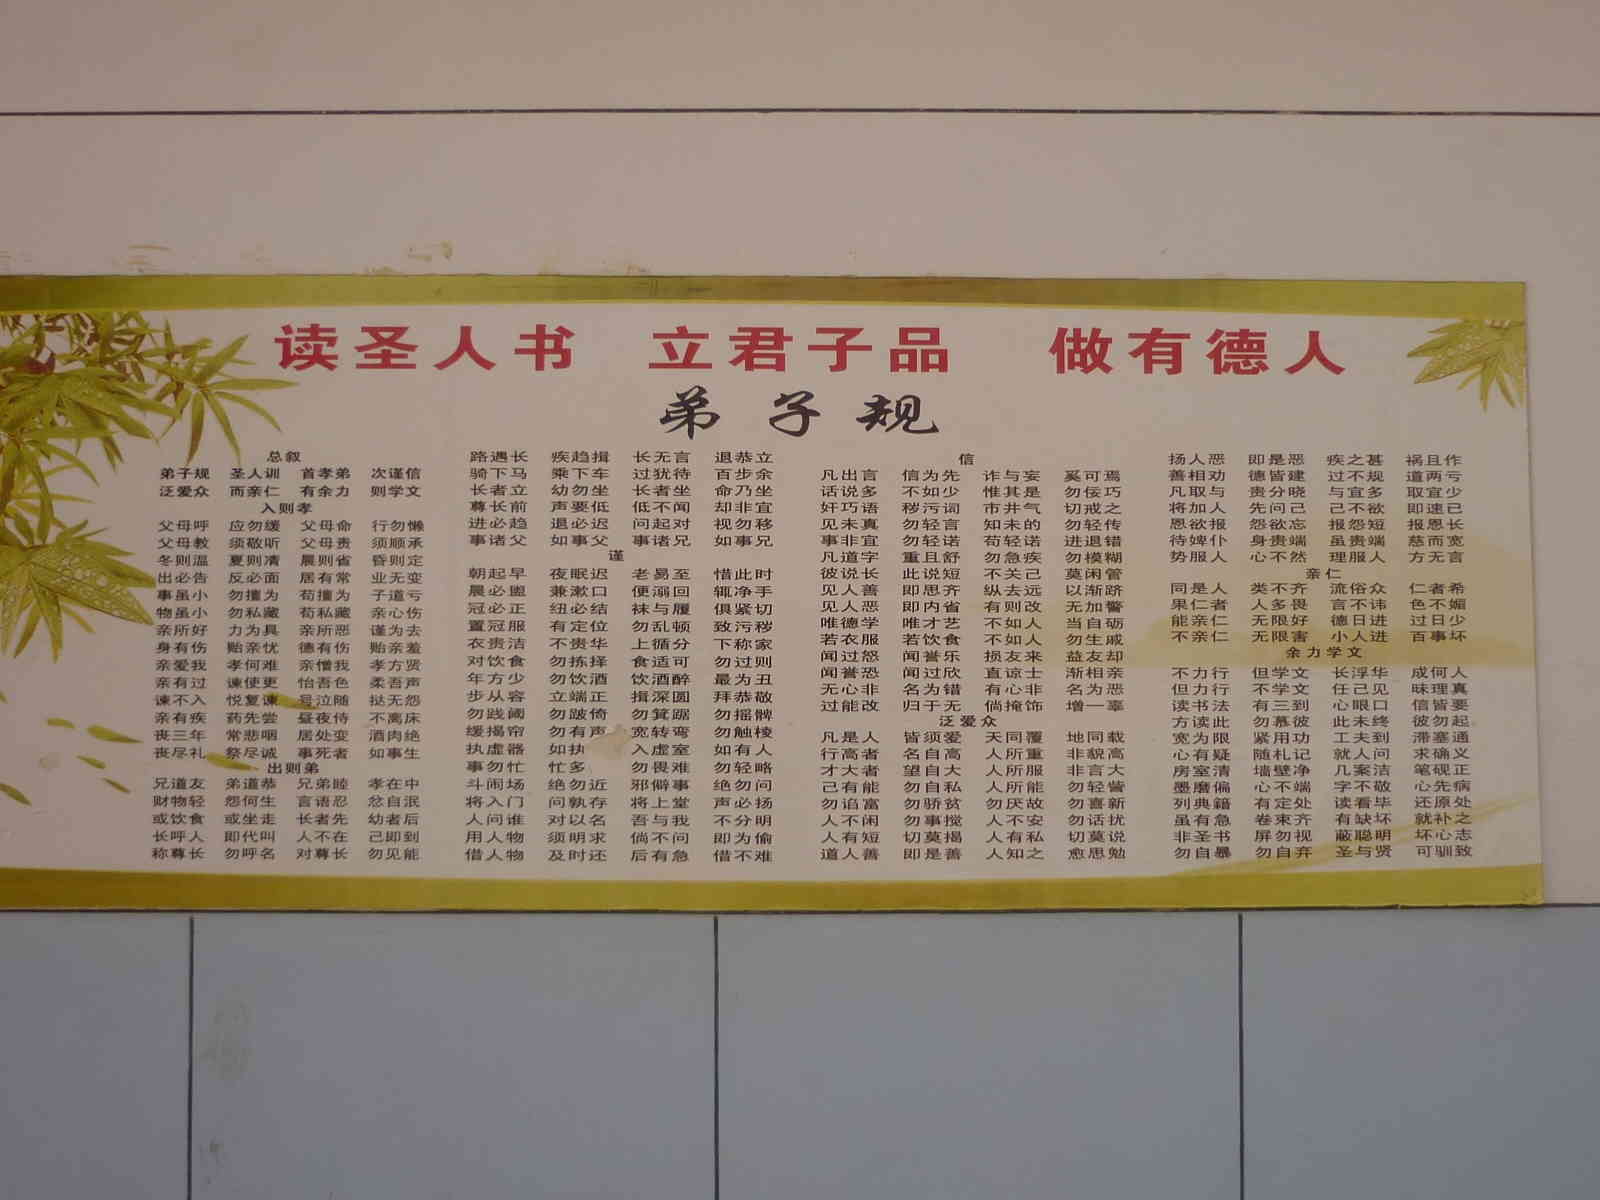 读圣人书 立君子品 做有德人
弟子规
总叙
弟子规 圣人训 首孝弟 次谨信
泛爱众 而亲仁 有余力 则学文
入则孝
父母呼 应勿缓 父母命 行勿懒
父母教 须敬听 父母责 须顺承
冬则温 夏则凊 晨则省 昏则定
出必告 反必面 居有常 业无变
事虽小 勿擅为 苟擅为 子道亏
物虽小 勿私藏 苟私藏 亲心伤
亲所好 力为具 亲所恶 谨为去
身有伤 贻亲忧 德有伤 贻亲羞
亲爱我 孝何难 亲憎我 孝方贤
亲有过 谏使更 怡吾色 柔吾声
谏不入 悦复谏 号泣随 挞无怨
亲有疾 药先尝 昼夜侍 不离床
丧三年 常悲咽 居处变 酒肉绝
丧尽礼 祭尽诚 事死者 如事生
出则弟
兄道友 弟道恭 兄弟睦 孝在中
财物轻 怨何生 言语忍 忿自泯
或饮食 或坐走 长者先 幼者后
长呼人 即代叫 人不在 己即到
称尊长 勿呼名 对尊长 勿见能
路遇长 疾趋揖 长无言 退恭立
骑下马 乘下车 过犹待 百步余
长者立 幼勿坐 长者坐 命乃坐
尊长前 声要低 低不闻 却非宜
进必趋 退必迟 问起对 视勿移
事诸父 如事父 事诸兄 如事兄
谨
朝起早 夜眠迟 老易至 惜此时
晨必盥 兼漱口 便溺回 辄净手
冠必正 纽必结 袜与履 俱紧切
置冠服 有定位 勿乱顿 致污秽
衣贵洁 不贵华 上循分 下称家
对饮食 勿拣择 食适可 勿过则
年方少 勿饮酒 饮酒醉 最为丑
步从容 立端正 揖深圆 拜恭敬
勿践阈 勿跛倚 勿箕踞 勿摇髀
缓揭帘 勿有声 宽转弯 勿触棱
执虚器 如执 入虚室 如有人
事勿忙 忙多 勿畏难 勿轻略
斗闹场 绝勿近 邪僻事 绝勿问
将入门 问孰存 将上堂 声必扬
人问谁 对以名 吾与我 不分明
用人物 须明求 倘不问 即为偷
借人物 及时还 后有急 借不难
信
凡出言 信为先 诈与妄 奚可焉
话说多 不如少 惟其是 勿佞巧
奸巧语 秽污词 市井气 切戒之
见未真 勿轻言 知未的 勿轻传
事非宜 勿轻诺 苟轻诺 进退错
凡道字 重且舒 勿急疾 勿模糊
彼说长 此说短 不关己 莫闲管
见人善 即思齐 纵去远 以渐跻
见人恶 即内省 有则改 无加警
唯德学 唯才艺 不如人 当自砺
若衣服 若饮食 不如人 勿生戚
闻过怒 闻誉乐 损友来 益友却
闻誉恐 闻过欣 直谅士 渐相亲
无心非 名为错 有心非 名为恶
过能改 归于无 倘掩饰 增一辜
泛爱众
凡是人 皆须爱 天同覆 地同载
行高者 名自高 人所重 非貌高
才大者 望自大 人所服 非言大
己有能 勿自私 人所能 勿轻訾
勿谄富 勿骄贫 勿厌故 勿喜新
人不闲 勿事搅 人不安 勿话扰
人有短 切莫揭 人有私 切莫说
道人善 即是善 人知之 愈思勉
扬人恶 即是恶 疾之甚 祸且作
善相劝 德皆建 过不规 道两亏
凡取与 贵分晓 与宜多 取宜少
将加人 先问己 己不欲 即速已
恩欲报 怨欲忘 报怨短 报恩长
待婢仆 身贵端 虽贵端 慈而宽
势服人 心不然 理服人 方无言
亲仁
同是人 类不齐 流俗众 仁者希
果仁者 人多畏 言不讳 色不媚
能亲仁 无限好 德日进 过日少
不亲仁 无限害 小人进 百事坏
余力学文
不力行 但学文 长浮华 成何人
但力行 不学文 任己见 昧理真
读书法 有三到 心眼口 信皆要
方读此 勿慕彼 此未终 彼勿起
宽为限 紧用功 工夫到 滞塞通
心有疑 随札记 就人问 求确义
房室清 墙壁净 几案洁 笔砚正
墨磨偏 心不端 字不敬 心先病
列典籍 有定处 读看毕 还原处
虽有急 卷束齐 有缺坏 就补之
非圣书 屏勿视 蔽聪明 坏心志
勿自暴 勿自弃 圣与贤 可驯致